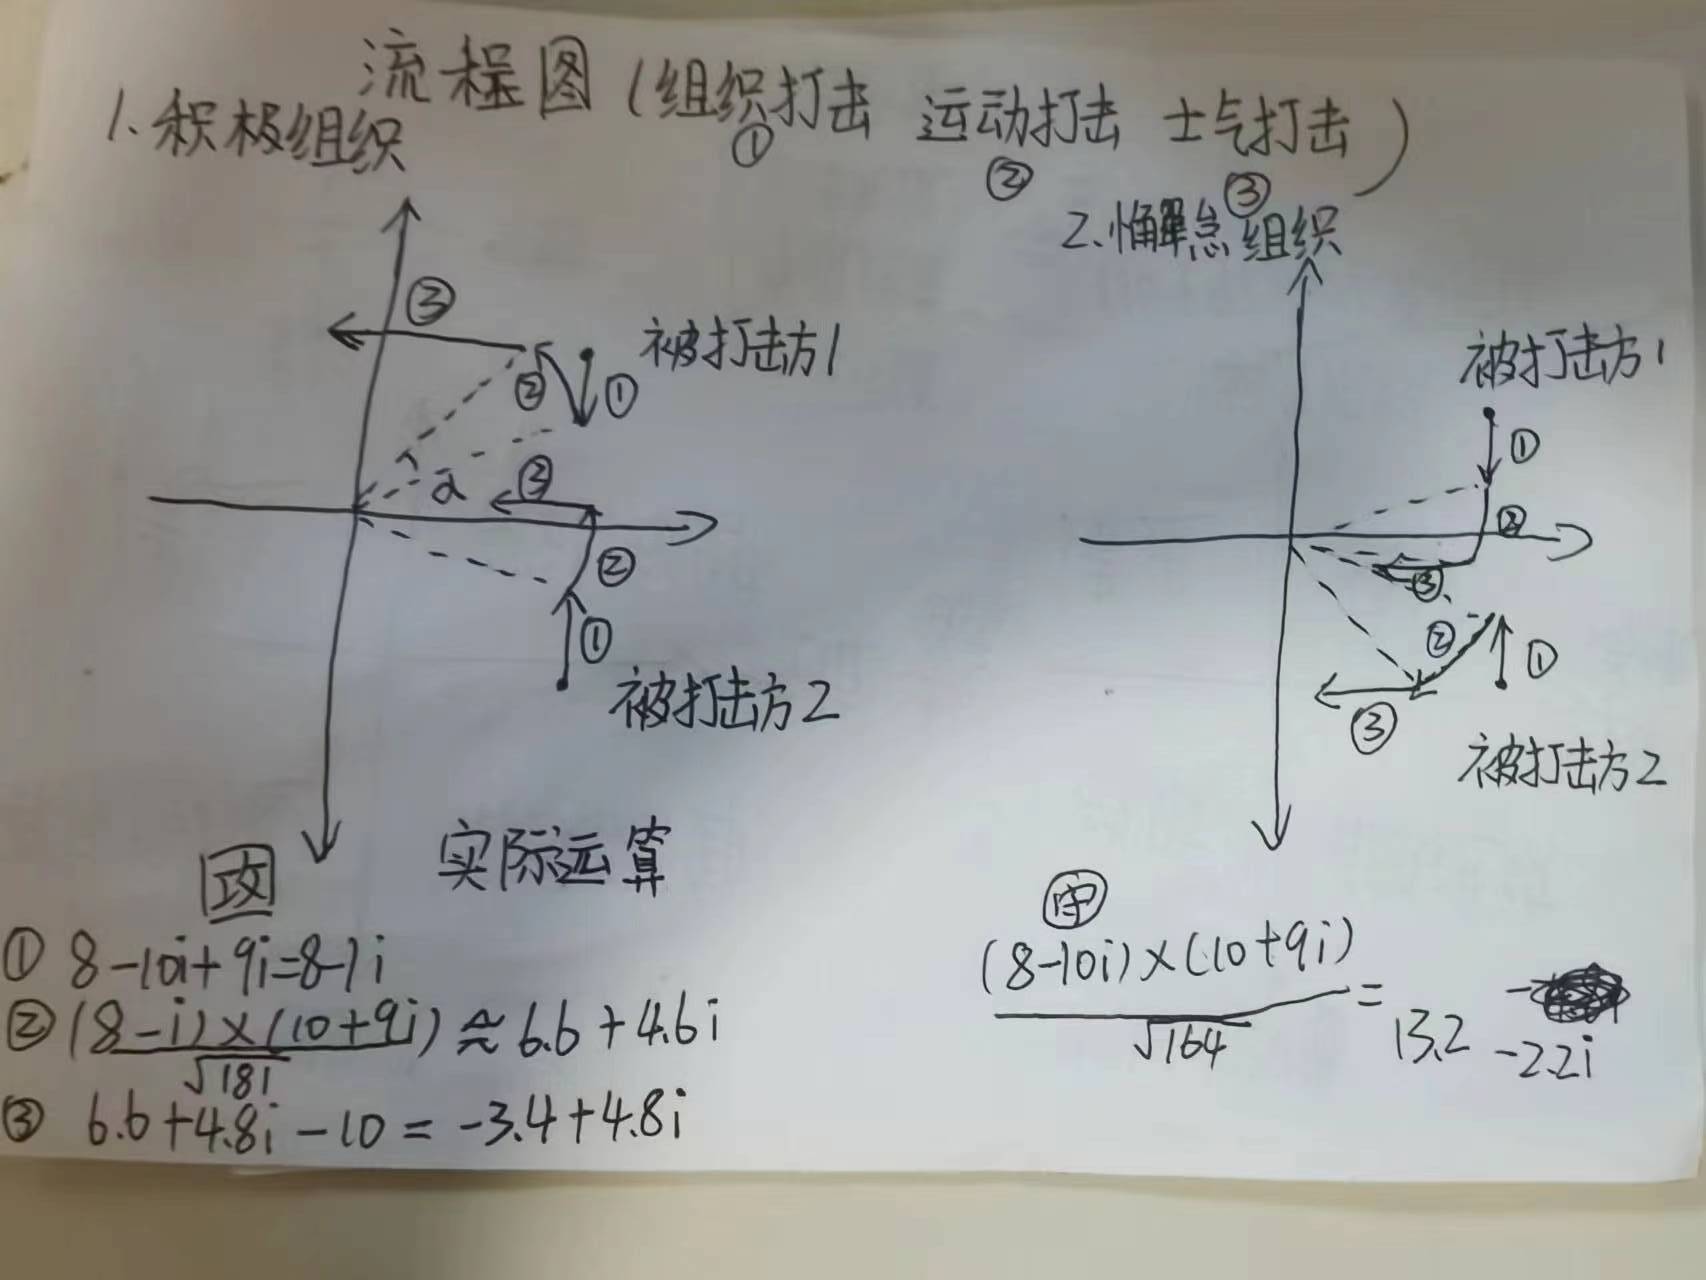 流程图(组织打击 运动打击 士气打击)
① ② ③
1.积极组织
③
被打击方1
② ①
α
③
②
①
被打击方2
2.懈怠组织
被打击方1
①
②
③
② ①
③
被打击方2
实际运算
攻
① 8-10i+9i=8-1i
② (8-i)×(10+9i) ≈ 6.6+4.6i
√181
③ 6.6+4.8i-10=-3.4+4.8i
守
(8-10i)×(10+9i)
√164
= 13.2 -2.2i